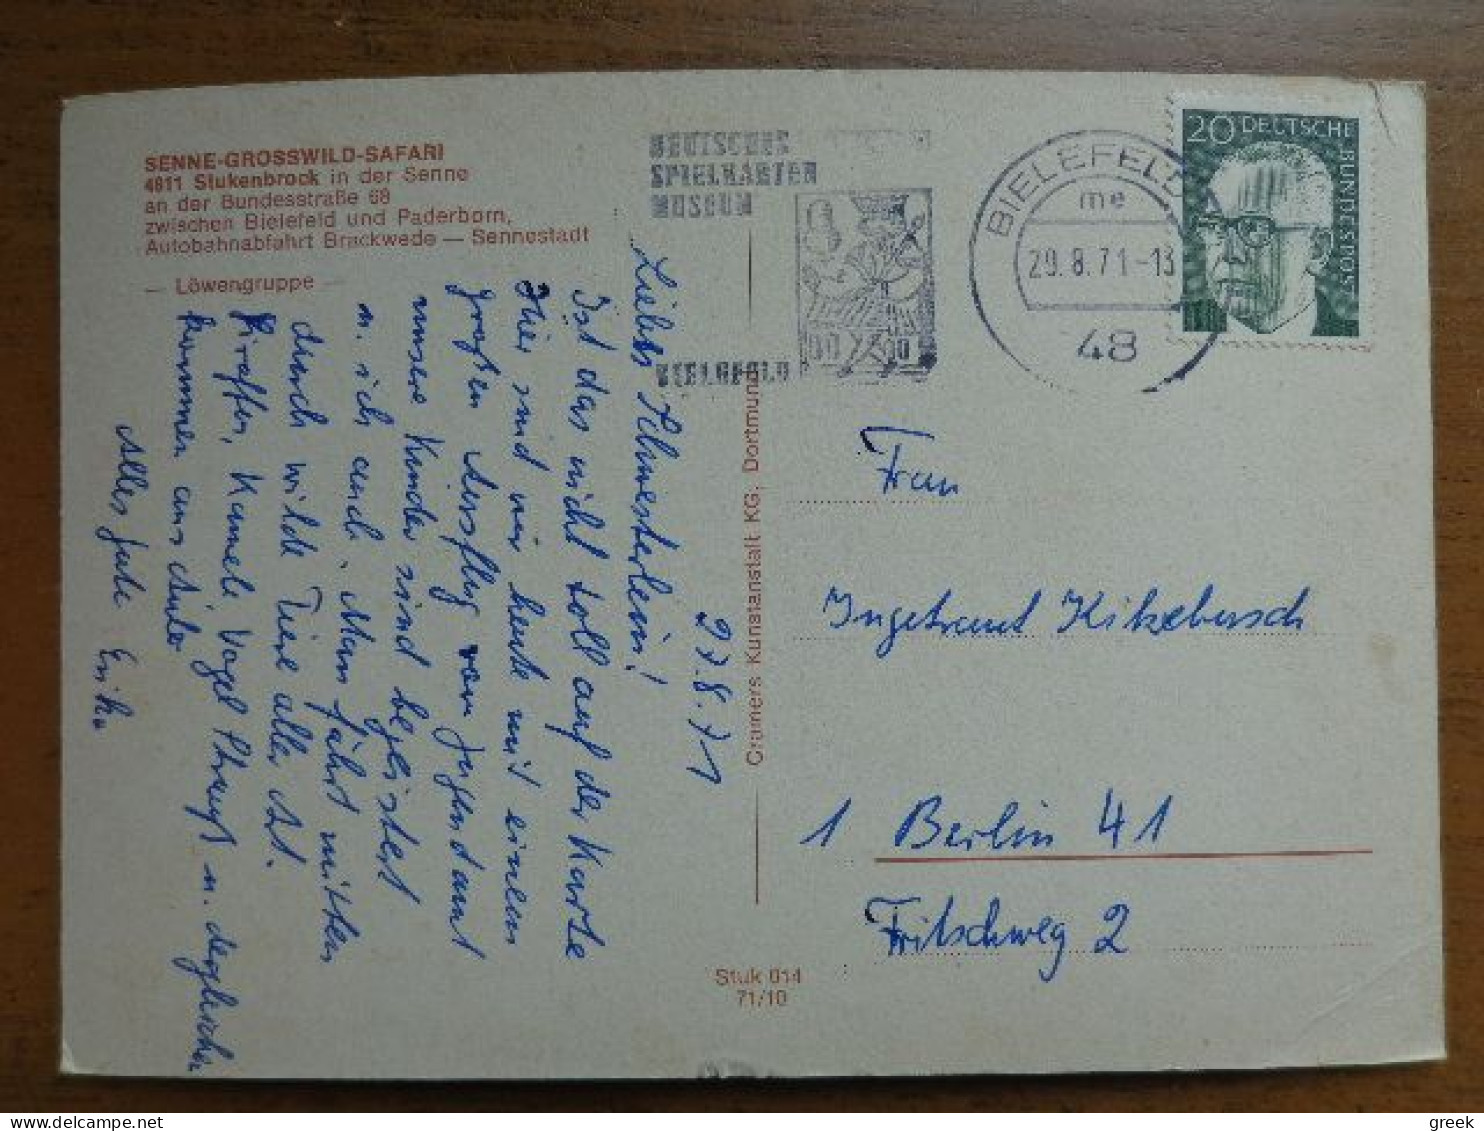 SENNE-GROSSWILD-SAFARI
4811 Stukenbrock in der Senne
an der Bundesstraße 68
zwischen Bielefeld und Paderborn,
Autobahnabfahrt Brackwede — Sennestadt
— Löwengruppe —
DEUTSCHES
SPIELKARTEN
MUSEUM
BIELEFELD
BIELEFELD
me
29.8.71-13
48
20 DEUTSCHE BUNDESPOST
27.8.71
Liebes Schwesterlein!
Ist das nicht toll auf der Karte
Hier sind wir heute mit einem
großen Ausflug vom Jugendamt
unsere Kinder sind begeistert
u. ich auch. Man fährt mitten
durch wilde Tiere aller Art.
Giraffen, Kamele Vogel Strauß u. dergleichen
kommen ans Auto
Alles Gute Erika
Cramers Kunstanstalt KG. Dortmund
Stuk 014
71/10
Frau
Ingetraut Kitzebusch
1 Berlin 41
Fritschweg 2
greek